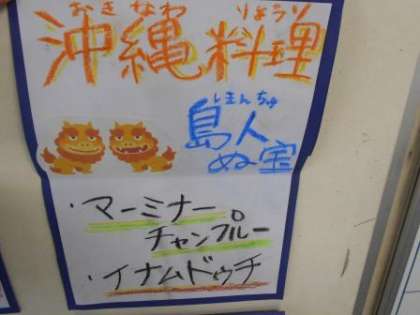 おきなわ りょうり
沖縄料理
しまんちゅ
島人
ぬ宝
・マーミナー
チャンプルー
・イナムドゥチ